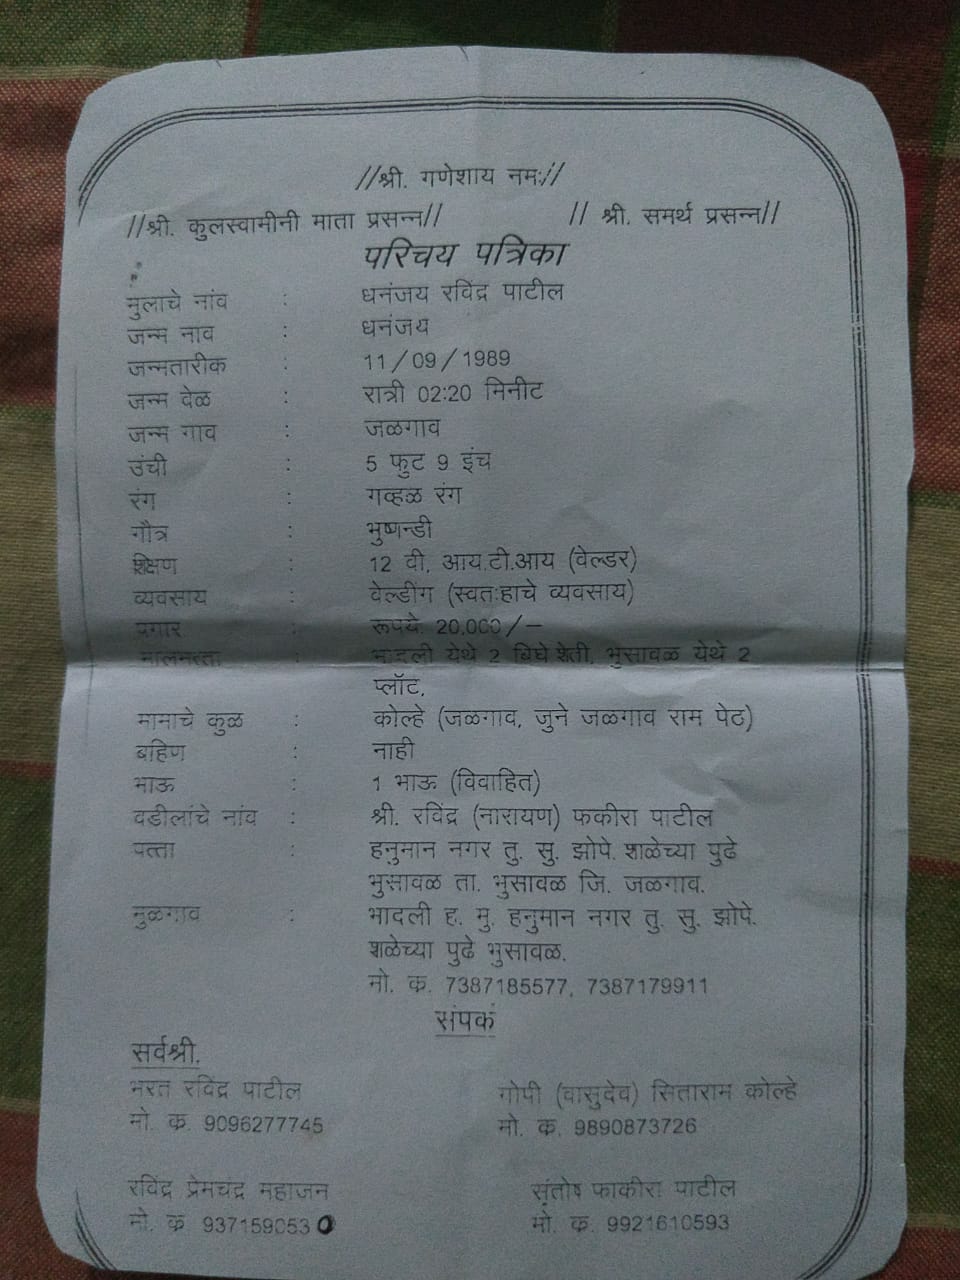 //श्री. गणेशाय नमः//
//श्री. कुलस्वामीनी माता प्रसन्न// // श्री. समर्थ प्रसन्न//
परिचय पत्रिका
मुलाचे नांव : धनंजय रविंद्र पाटील
जन्म नाव : धनंजय
जन्मतारीक : 11/09/1989
जन्म वेळ : रात्री 02:20 मिनीट
जन्म गाव : जळगाव
उंची : 5 फुट 9 इंच
रंग : गव्हळ रंग
गौत्र : भुष्णन्डी
शिक्षण : 12 वी, आय.टी.आय (वेल्डर)
व्यवसाय : वेल्डींग (स्वतःहाचे व्यवसाय)
पगार : रूपये. 20,000/-
मालमत्ता : भादली येथे 2 बिघे शेती, भुसावळ येथे 2
प्लॉट,
मामाचे कुळ : कोल्हे (जळगाव, जुने जळगाव राम पेठ)
बहिण : नाही
भाऊ : 1 भाऊ (विवाहित)
वडीलांचे नांव : श्री. रविंद्र (नारायण) फकीरा पाटील
पत्ता : हनुमान नगर तु. सु. झोपे. शळेच्या पुढे
भुसावळ ता. भुसावळ जि. जळगाव.
मुळगाव : भादली ह. मु. हनुमान नगर तु. सु. झोपे.
शळेच्या पुढे भुसावळ.
मो. क्र. 7387185577, 7387179911
संपर्क
सर्वश्री.
भरत रविंद्र पाटील गोपी (वासुदेव) सिताराम कोल्हे
मो. क्र. 9096277745 मो. क्र. 9890873726
रविंद्र प्रेमचंद्र महाजन संतोष फाकीरा पाटील
मो. क्र 9371590530 मो. क्र. 9921610593